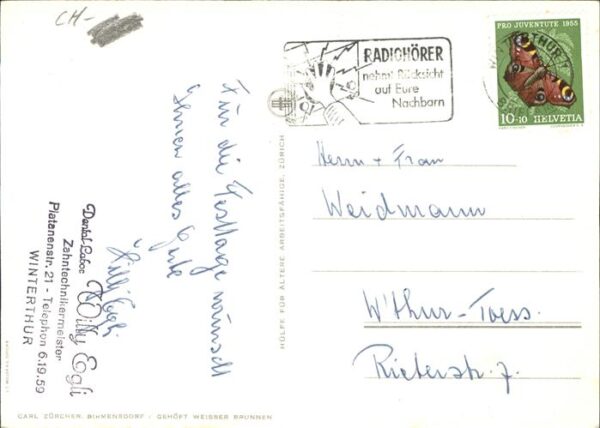 CH-
RADIOHÖRER
nehmt Rücksicht
auf Eure
Nachbarn
PRO JUVENTUTE 1955
10+10 HELVETIA
WINTERTHUR
Für die Festtage wünscht
Ihnen alles Gute
Willy Egli
Dental-Labor Willy Egli
Zahntechnikermeister
Platanenstr. 21 - Telephon 6.19.59
WINTERTHUR
HÜLFE FÜR ÄLTERE ARBEITSFÄHIGE, ZÜRICH
Herrn + Frau
Weidmann
W'thur-Toess.
Rieterstr. 7.
CARL ZÜRCHER, BIRMENSDORF / GEHÖFT WEISSER BRUNNEN